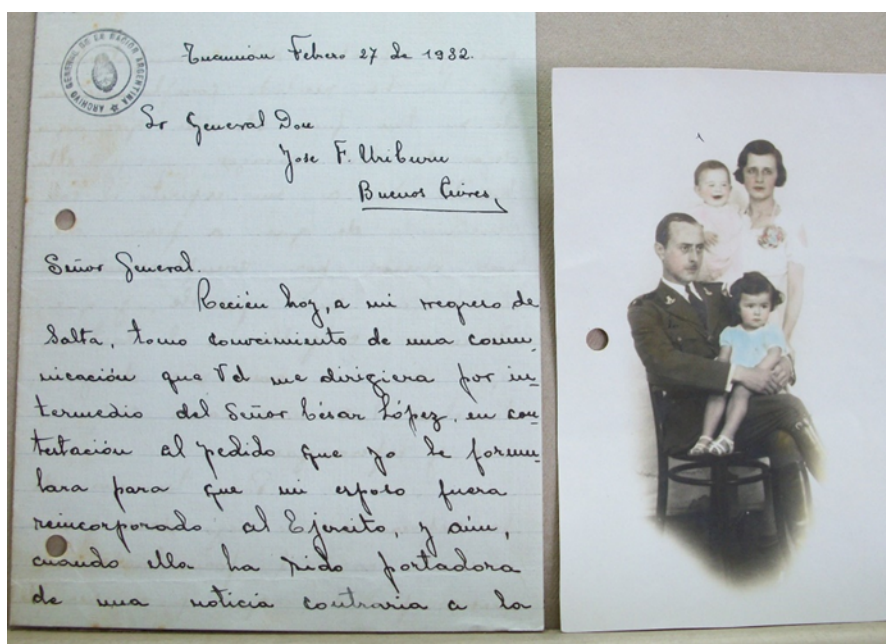 ARCHIVO GENERAL DE LA NACION ARGENTINA
Tucumán Febrero 27 de 1932.
Sr General Don
Jose F. Uriburu
Buenos Aires,
Señor General.
Recién hoy, a mi regreso de
Salta, tomo conocimiento de una comu-
nicación que Vd me dirigiera por in-
termedio del Señor César López, en con-
testación al pedido que yo le formu-
lara para que mi esposo fuera
reincorporado al Ejército, y aún,
cuando ella ha sido portadora
de una noticia contraria a la